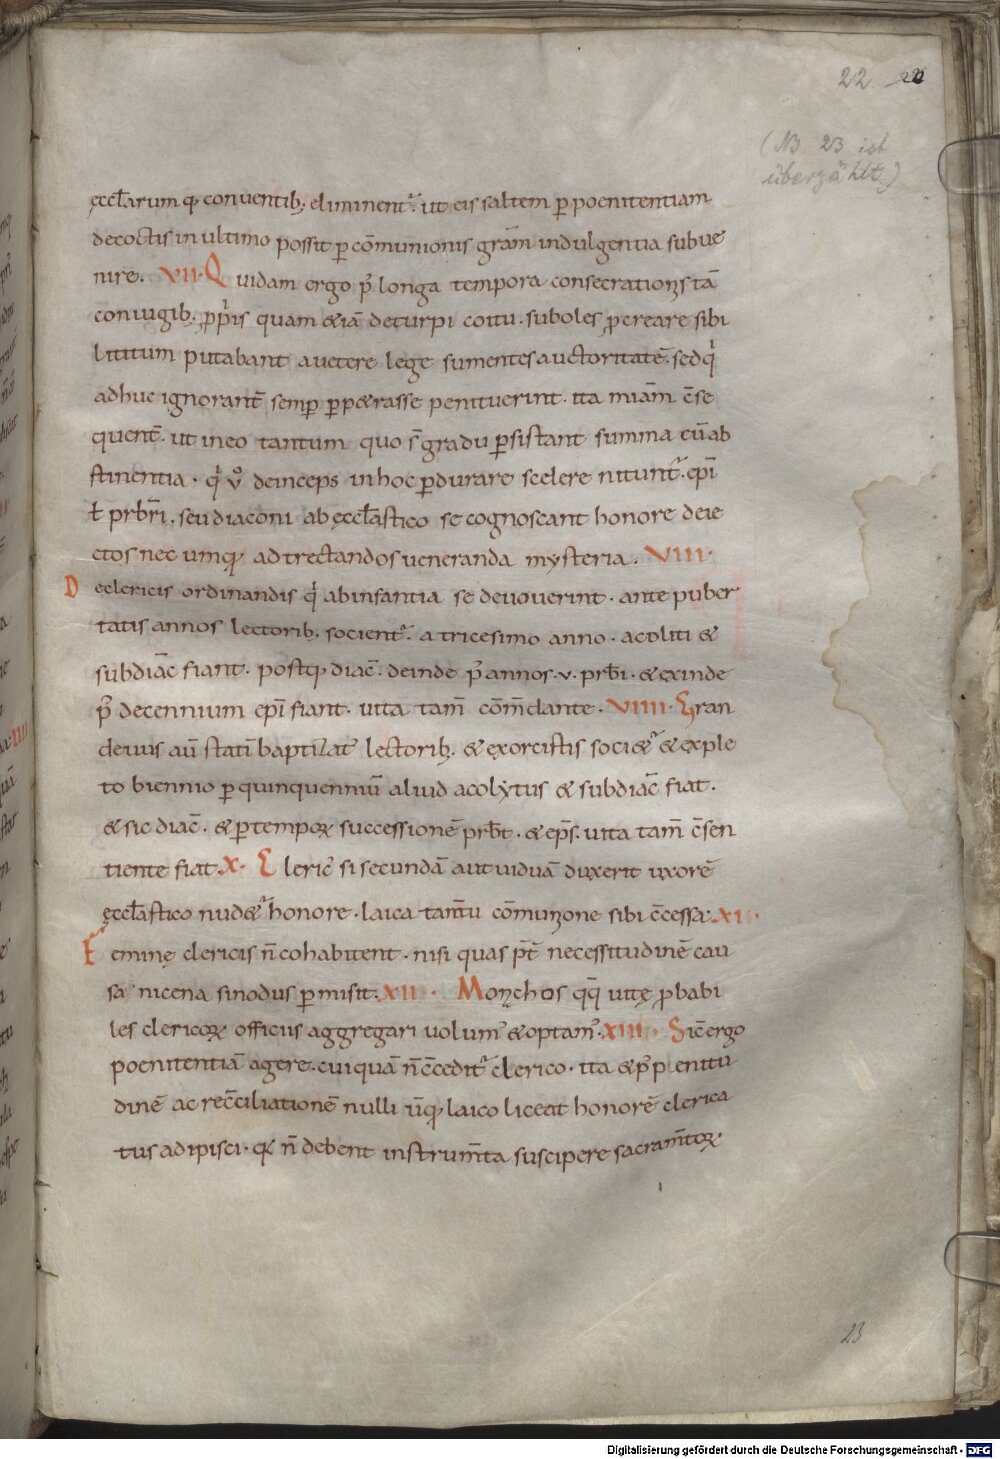 22 22
(NB. 23 ist
überzählt)
ęccl̄arum q; conuentib; eliminent᷑. ut eis saltem ꝑ poenitentiam
decoctis in ultimo possit ꝑ cōmunionis grām indulgentia subue
nire. VII. Quidam ergo p̄ longa tempora consecrationis tā
coniugib; pp̄ris quam &iā de turpi coitu. suboles ꝓcreare sibi
lititum putabant a uetere lege sumentes auctoritatē. sed qͥ
adhuc ignorant̄ semꝑ ꝑp&rasse penituerint. ita miām c̄se
quent̄. ut in eo tantum quo s̄ gradu ꝑsistant summa cū ab
stinentia. qͥ ū deinceps in hoc ꝑdurare scelere nitunt᷑. ep̄i
ł prb̄ri. seu diaconi ab ęccl̄astico se cognoscant honore deie
ctos nec umq; ad trectandos ueneranda mysteria. VIII.
De clericis ordinandis qͥ ab infantia se deuouerint. ante puber
tatis annos lectorib; socient᷑. a tricesimo anno. acoliti &
subdiāc fiant. postq; diac̄. deinde p̄ annos. v. prb̄i. & exinde
p̄ decennium ep̄i fiant. uita tam̄ cōm̄dante. VIIII. Gran
deuus aū statī baptizat᷑ lectorib; & exorcistis soci&᷑ & exple
to biennio ꝑ quinquenniū aliud acolytus & subdiāc fiat.
& sic diac̄. & ꝑ temporꝝ successionē prb̄t. & ep̄s. uita tam̄ c̄sen
tiente fiat. X. Cleric̄ si secundā aut uiduā duxerit uxorē
ęccl̄astico nud&᷑ honore. laica tantū cōmunione sibi c̄cessa. XI.
Feminę clericis n̄ cohabitent. nisi quas p̄t̄ necessitudinē cau
sa nicena sinodus ꝑmisit. XII. Monachos qq̄ uitę ꝓbabi
les clericoꝝ officiis aggregari uolum᷒ & optam᷒. XIII. Sic ergo
poenitentiā agere. cuiquā n̄ c̄cedit᷑ clerico. ita & p̄ penitu
dinē ac rec̄ciliationē nulli ūq; laico liceat honorē clerica
tus adipisci. qꝛ n̄ debent instrum̄ta suscipere sacram̄toꝝ.
23
Digitalisierung gefördert durch die Deutsche Forschungsgemeinschaft - DFG